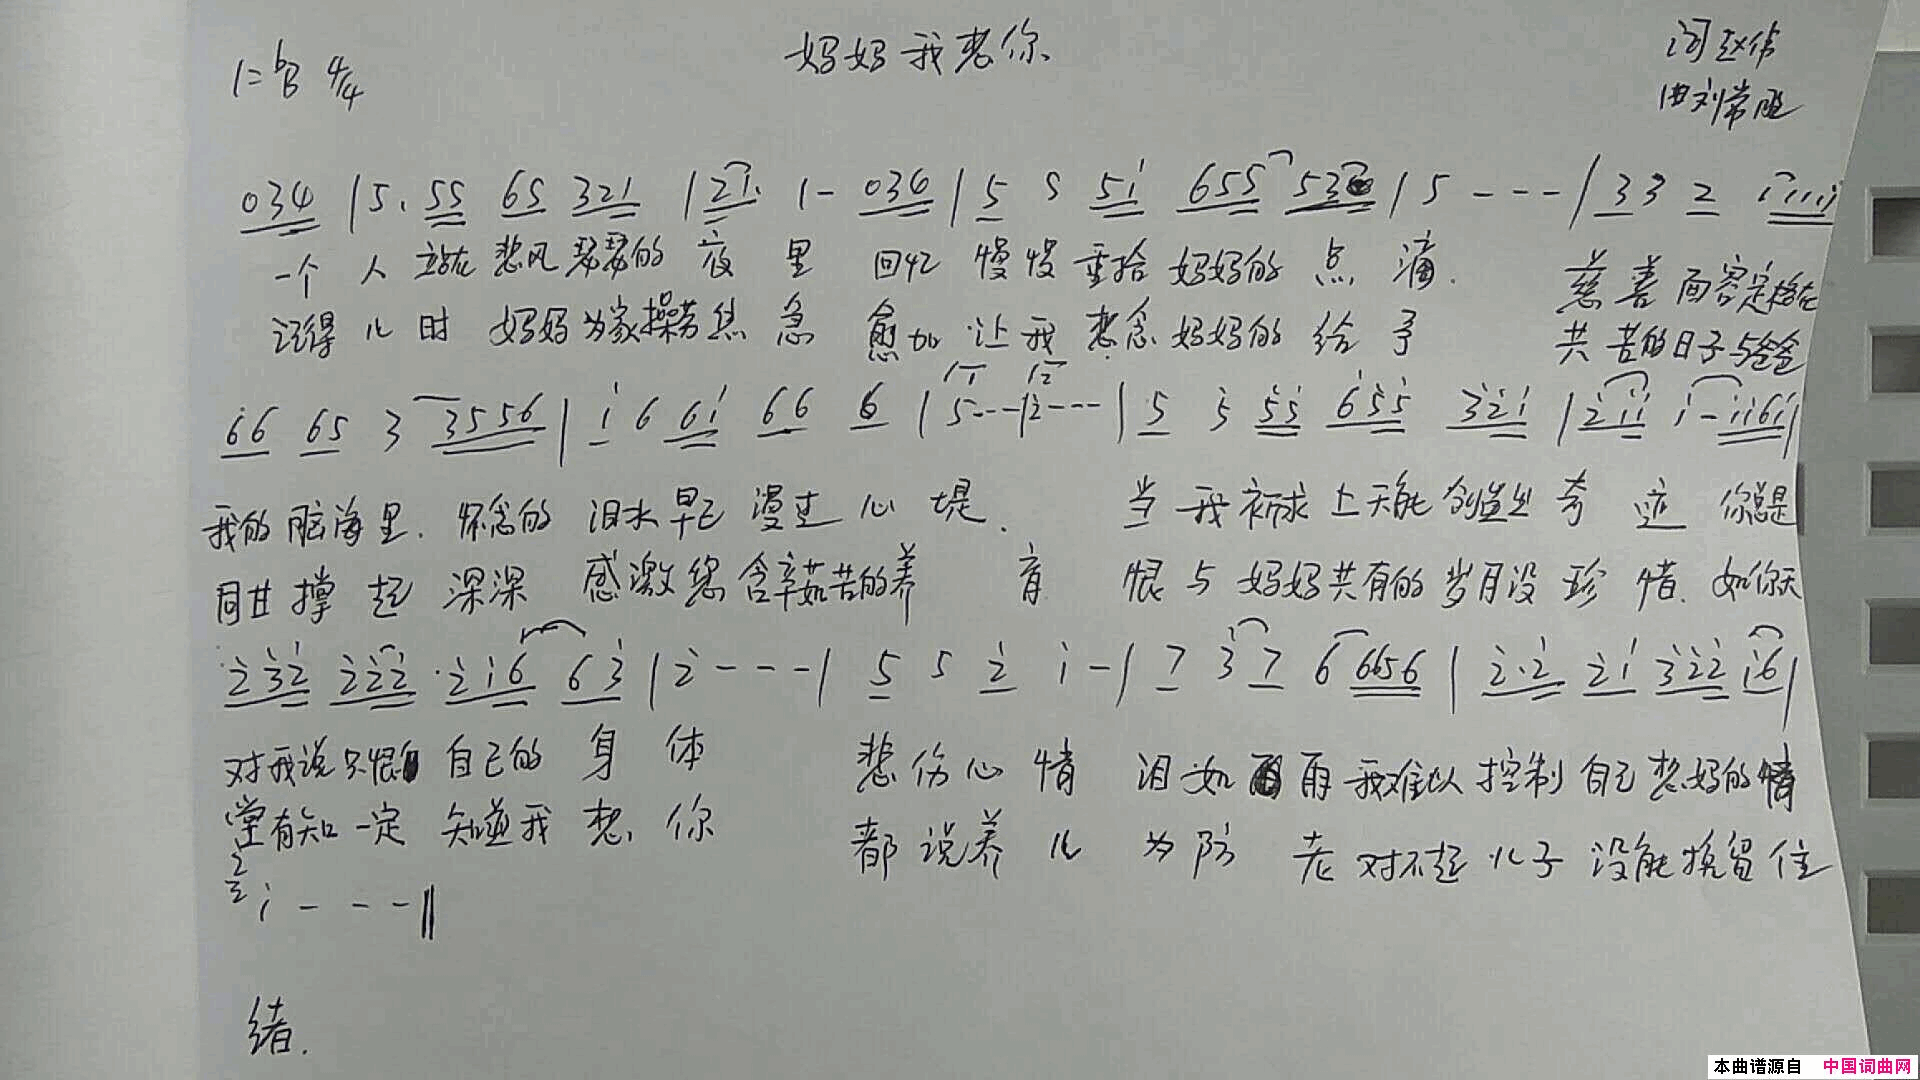 妈妈我想你
词 赵伟
1=ᵇB 4/4
曲 刘常胜
034 | 5. 55 65 321 | 21. 1 - 034 | 5 5 5i 655 53 | 5 - - - | 33 2 iiiii
一个人 站在悲风瑟瑟的夜里 回忆慢慢重拾妈妈的点滴. 慈善面容定格在
记得儿时 妈妈为家操劳焦急 愈加让我想念妈妈的给予 共苦的日子与爸爸
66 65 3 3556 | i 6 6i 66 6 | 5--- | 2--- | 5 5 55 655 32i | 2ii i-ii6i |
我的脑海里. 怀念的泪水早已漫过心堤. 当我祈求上天能创造出奇迹 你总是
同甘撑起深深 感激您含辛茹苦的养育 恨与妈妈共有的岁月没珍惜. 如你天
232 222 2i6 63 | 2 - - - | 5 5 2 i - | 7 37 6 6656 | 2.2 2i 322 i6 |
对我说只恨自己的身体 悲伤心情 泪如雨 我难以控制自己想妈的情
堂有知一定知道我想你 都说养儿为防老 对不起儿子没能挽留住
i - - - ‖
绪.
本曲谱源自 中国词曲网